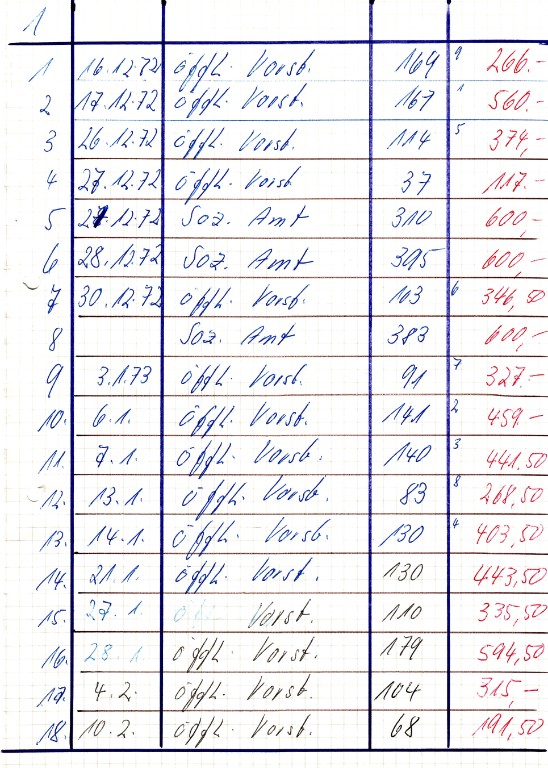 1
1 16.12.72 öffl. Vorst. 169 9 266.-
2 17.12.72 öffl. Vorst. 167 1 560.-
3 26.12.72 öffl. Vorst. 114 5 374,-
4 27.12.72 öffl. Vorst 37 117.-
5 27.12.72 Soz. Amt 310 600,-
6 28.12.72 Soz. Amt 395 600,-
7 30.12.72 öffl. Vorst. 103 6 346,50
8 Soz. Amt 383 600,-
9 3.1.73 öffl. Vorst. 91 7 327.-
10. 6.1. öffl. Vorst. 141 2 459.-
11. 7.1. öffl. Vorst. 140 3 441.50
12. 13.1. öffl. Vorst. 83 8 268,50
13. 14.1. öffl. Vorst. 130 4 403,50
14. 21.1. öffl. Vorst. 130 443,50
15. 27.1. Vorst. 110 335,50
16. 28.1 öffl. Vorst. 179 594,50
17. 4.2. öffl. Vorst. 104 315,-
18. 10.2. öffl. Vorst. 68 191,50